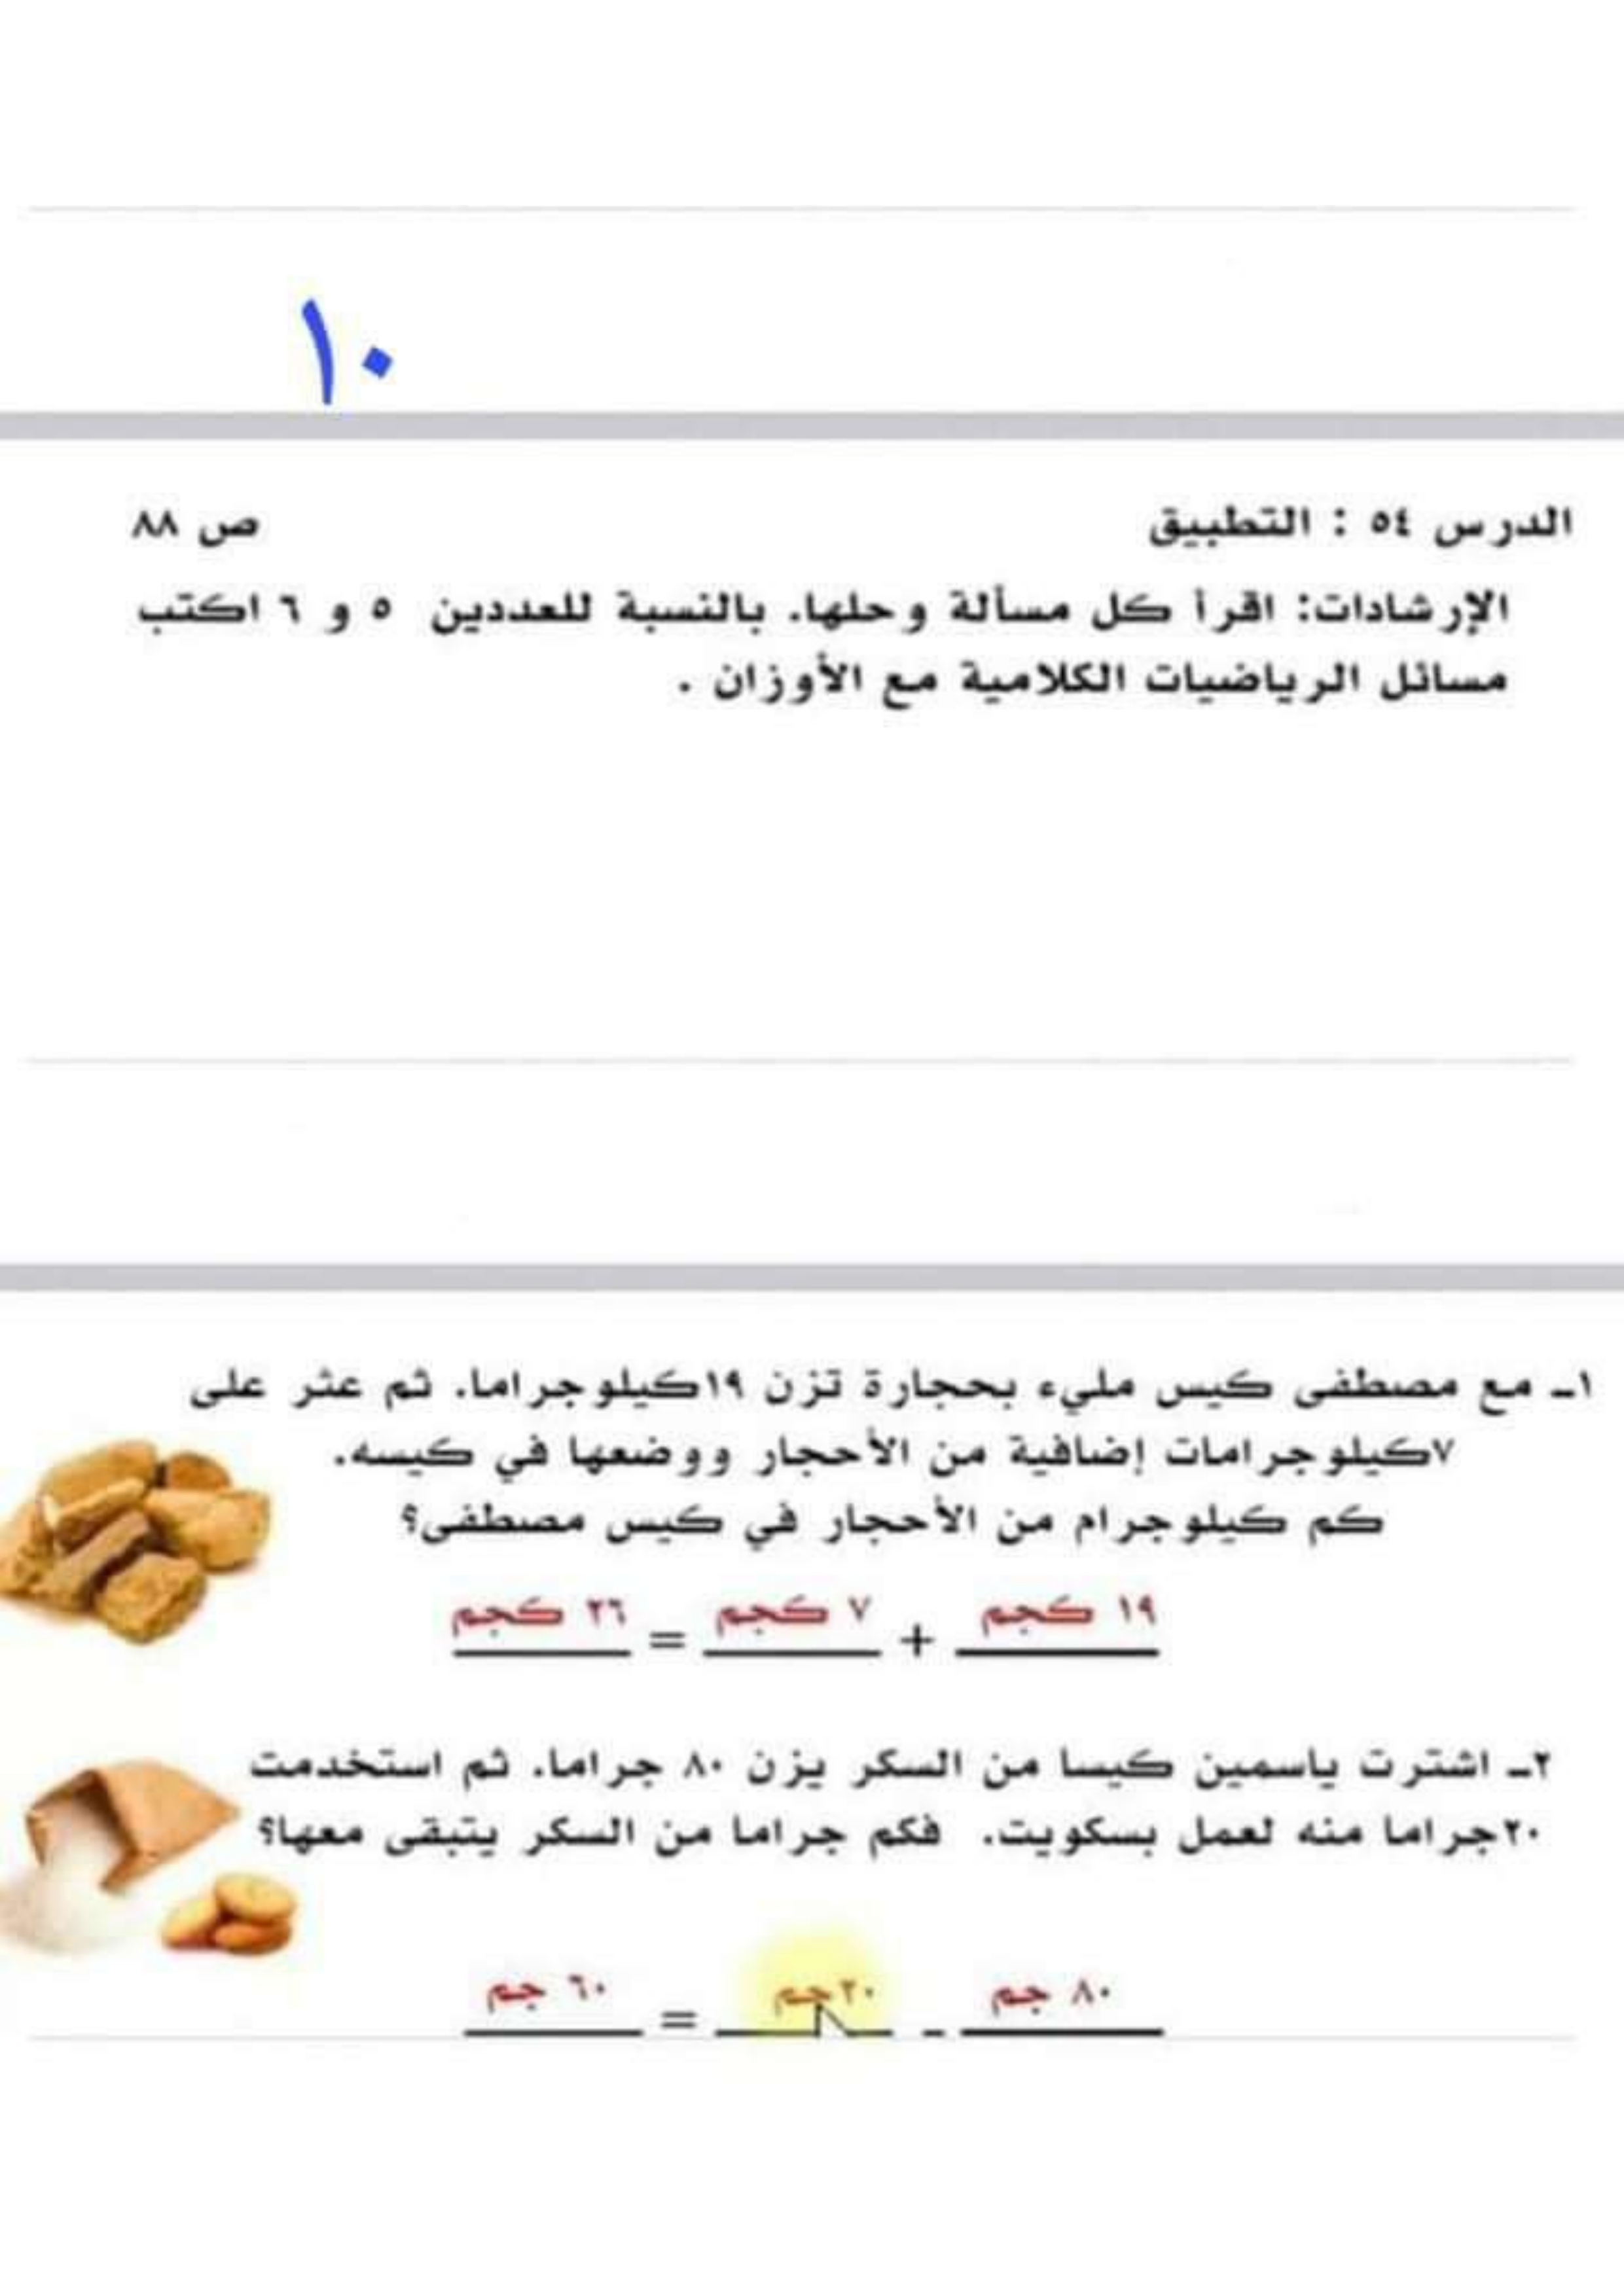 ١٠
الدرس ٥٤ : التطبيق
ص ٨٨
الإرشادات: اقرأ كل مسألة وحلها. بالنسبة للعددين ٥ و ٦ اكتب
مسائل الرياضيات الكلامية مع الأوزان .
١ـ مع مصطفى كيس مليء بحجارة تزن ١٩كيلوجراما. ثم عثر على
٧كيلوجرامات إضافية من الأحجار ووضعها في كيسه.
كم كيلوجرام من الأحجار في كيس مصطفى؟
١٩ كجم + ٧ كجم = ٢٦ كجم
٢ـ اشترت ياسمين كيسا من السكر يزن ٨٠ جراما. ثم استخدمت
٢٠جراما منه لعمل بسكويت. فكم جراما من السكر يتبقى معها؟
٨٠ جم - ٢٠جم = ٦٠ جم